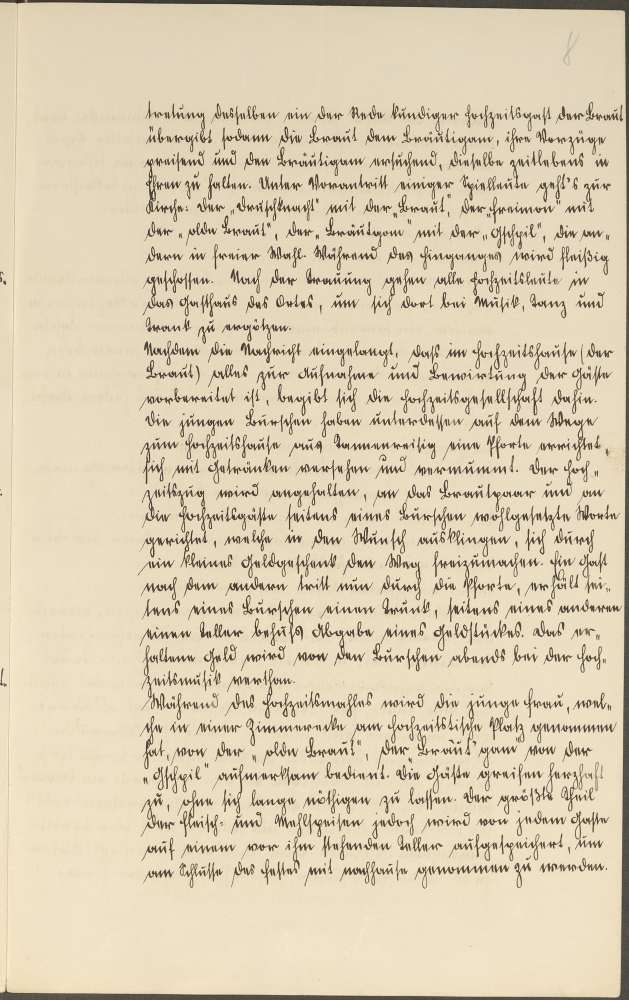 8
tretung desselben ein der Rede kundiger Hochzeitsgast der Braut
übergibt sodann die Braut dem Bräutigam, ihre Vorzüge
preisend und den Bräutigam ersuchend, dieselbe zeitlebens in
Ehren zu halten. Unter Vorantritt einiger Spielleute geht's zur
Kirche: der „Druschknacht" mit der „Braut", der „Freimon" mit
der „oldn Braut", der „Bräutgom" mit der „Gschpil", die an„
dern in freier Wahl. Während des Hinganges wird fleißig
geschossen. Nach der Trauung gehen alle Hochzeitsleute in
das Gasthaus des Ortes, um sich dort bei Musik, Tanz und
Trank zu ergötzen.
Nachdem die Nachricht eingelangt, dass im Hochzeitshause (der
Braut) alles zur Aufnahme und Bewirtung der Gäste
vorbereitet ist, begibt sich die Hochzeitsgesellschaft dahin.
Die jungen Burschen haben unterdessen auf dem Wege
zum Hochzeitshause aus Tannenreisig eine Pforte errichtet,
sich mit Getränken versehen und vermummt. Der Hoch„
zeitszug wird angehalten, an das Brautpaar und an
die Hochzeitsgäste seitens eines Burschen wohlgesetzte Worte
gerichtet, welche in den Wunsch ausklingen, sich durch
ein kleines Geldgeschenk den Weg freizumachen. Ein Gast
nach dem andern tritt nun durch die Pforte, erhält sei„
tens eines Burschen einen Trunk, seitens eines anderen
einen Teller behufs Abgabe eines Geldstückes. Das er„
haltene Geld wird von den Burschen abends bei der Hoch„
zeitsmusik verthan.
Während des Hochzeitsmahles wird die junge Frau, wel„
che in einer Zimmerecke am Hochzeitstische Platz genommen
hat, von der „oldn Braut", der Bräut'gam von der
„Gschpil" aufmerksam bedient. Die Gäste greifen herzhaft
zu, ohne sich lange nöthigen zu lassen. Der größte Theil
der Fleisch- und Mehlspeisen jedoch wird von jedem Gaste
auf einem vor ihm stehenden Teller aufgespeichert, um
am Schlusse des Festes mit nachhause genommen zu werden.